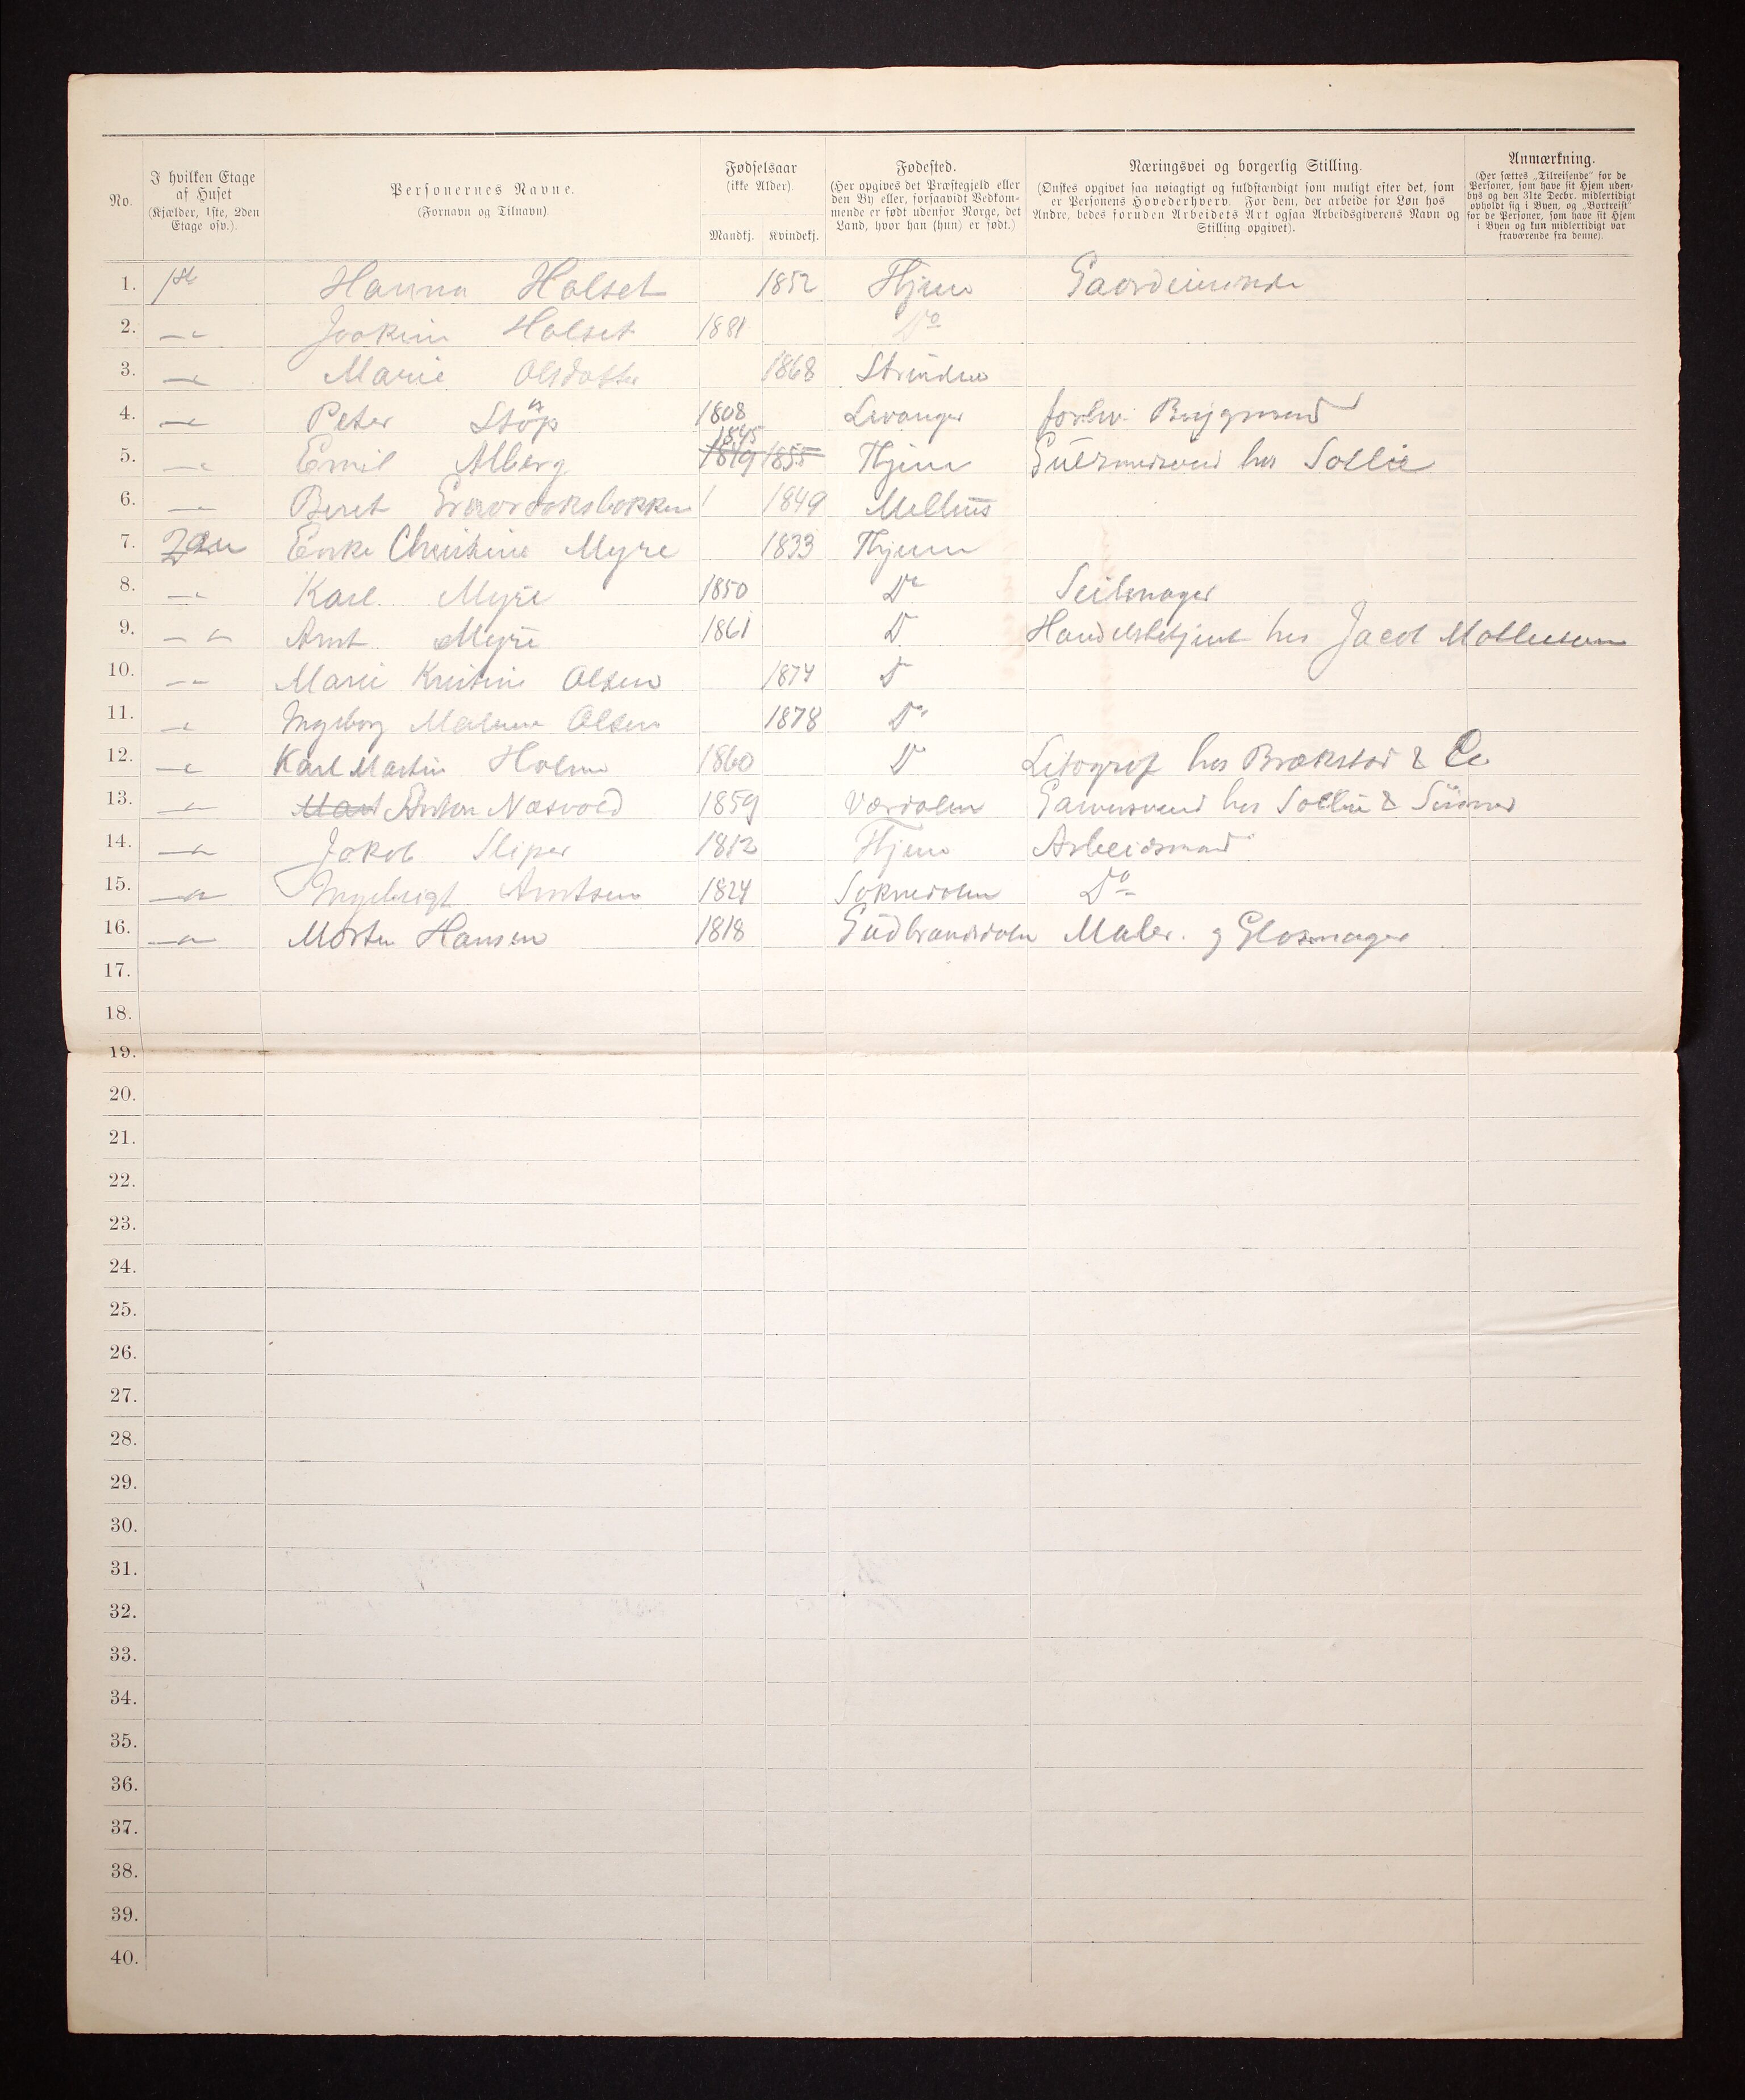 No.
I hvilken Etage
af Huset
(Kjælder, 1ste, 2den
Etage osv.).
Personernes Navne.
(Fornavn og Tilnavn).
Fødselsaar
(ikke Alder).
Mandkj. Kvindekj.
Fødested.
(Her opgives det Præstegjeld eller
den By eller, forsaavidt Vedkom-
mende er født udenfor Norge, det
Land, hvor han (hun) er født.)
Næringsvei og borgerlig Stilling.
(Ønskes opgivet saa nøiagtigt og fuldstændigt som muligt efter det, som
er Personens Hovederhverv. For dem, der arbeide for Løn hos
Andre, bedes foruden Arbeidets Art ogsaa Arbeidsgiverens Navn og
Stilling opgivet).
Anmærkning.
(Her sættes „Tilreisende" for de
Personer, som have sit Hjem uden-
bys og den 31te Decbr. midlertidigt
opholdt sig i Byen, og „Bortreist"
for de Personer, som have sit Hjem
i Byen og kun midlertidigt var
fraværende fra denne).
1. 1ste Hanna Halset 1852 Thjem
2. Joakim Halset 1881 Do
3. Marie Olsdatter 1868 Strinden
4. Peter Støp 1808 Levanger forhv. Bygmand
1845
5. Emil Alberg 1819 1855 Thjem hos Sollie
6. Beret 1849 Melhus
7. 2den Enke Christine Myre 1833 Thjem
8. Karl Myre 1850 Do Seilmager
9. Arnt Myre 1861 D Handelsbetjent hos Jacob
10. Marie Kristine Olsen 1874 D
11. Ingeborg Olsen 1878 Do
12. Karl Martin Holm 1860 D Litograf hos Brækstad & Co
13. Anton Nasvold 1859 Værdalen Garversvend hos Sollie & Sønner
14. Jakob Sliper 1812 Thjem Arbeidsmand
15. Ingebrigt Arntsen 1824 Soknedalen Do
16. Morten Hansen 1818 Gudbrandsdalen Maler. og Glasmager
17.
18.
19.
20.
21.
22.
23.
24.
25.
26.
27.
28.
29.
30.
31.
32.
33.
34.
35.
36.
37.
38.
39.
40.